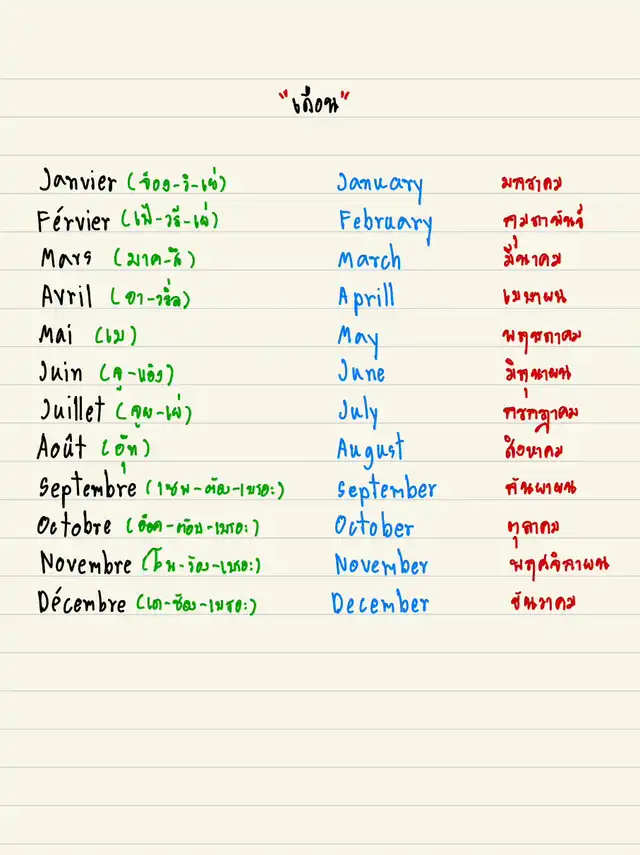 "เดือน"
Janvier (จ็อง-วิ-เย่) January มกราคม
Férvier (เฟ้-วรี-เย่) February กุมภาพันธ์
Mars (มาค-สึ) March มีนาคม
Avril (อา-วริ่ล) Aprill เมษายน
Mai (เม) May พฤษภาคม
Juin (จู-แอ็ง) June มิถุนายน
Juillet (จูย-เย่) July กรกฎาคม
Août (อุ๊ท) August สิงหาคม
Septembre (เซพ-ต้อม-เบรอะ) September กันยายน
Octobre (อ็อค-ต้อบ-เบรอะ) October ตุลาคม
Novembre (โน-ว้อม-เบรอะ) November พฤศจิกายน
Décembre (เด-ซ้อม-เบรอะ) December ธันวาคม